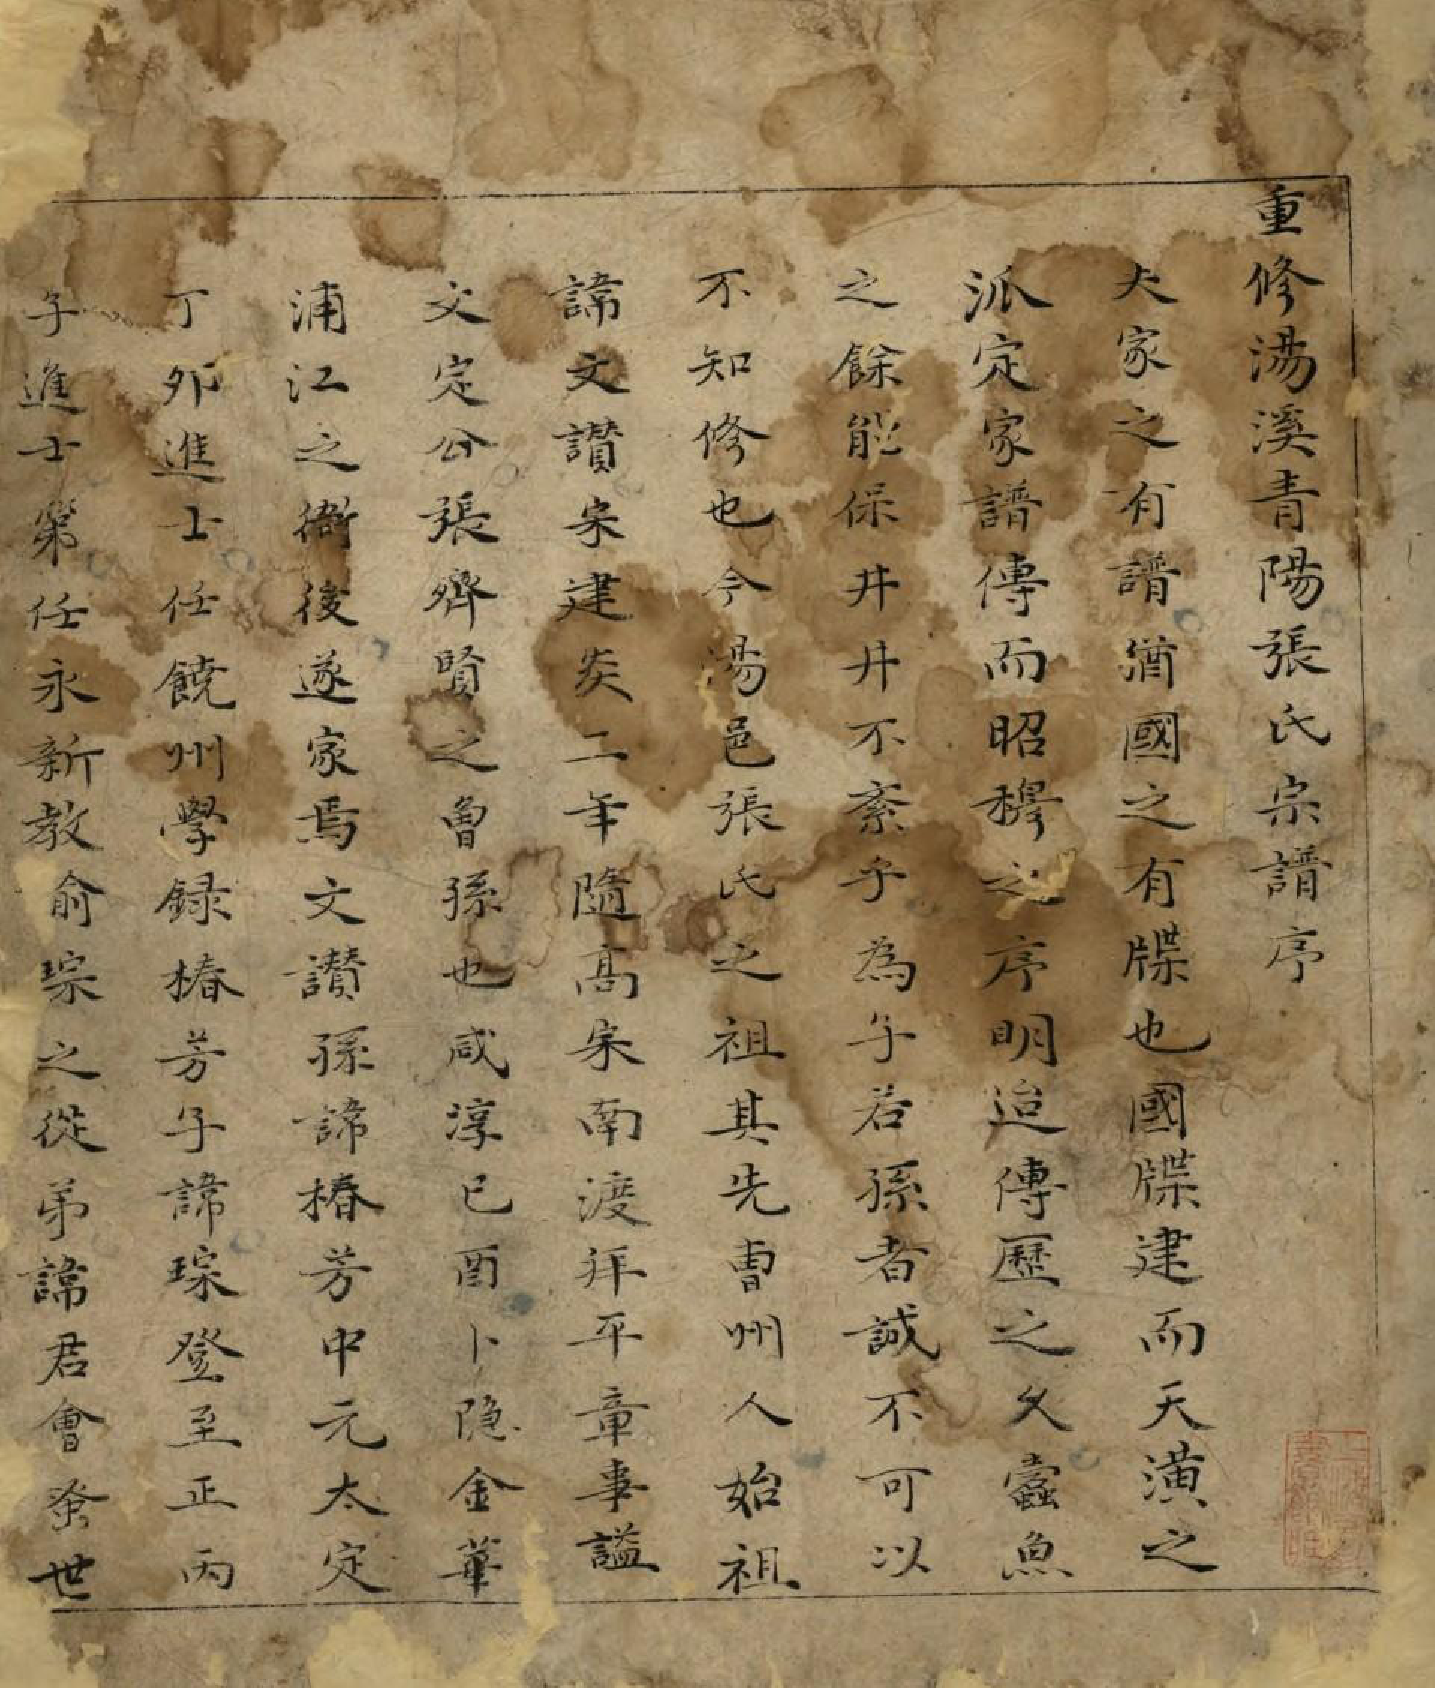 重修湯溪青陽張氏宗譜序
夫家之有譜猶國之有牒也國牒建而天潢之
派定家譜傳而昭穆之序明迨傳歷之久蠹魚
之餘能保井井不紊乎為子若孫者誠不可以
不知修也今湯邑張氏之祖其先曹州人始祖
諱文讃宋建炎二年隨高宋南渡拜平章事謚
文定公張齊賢之曾孫也咸淳已酉卜隐金華
浦江之衢後遂家焉文讃孫諱椿芳中元太定
丁夘進士任饒州學録椿芳子諱琮登至正丙
子進士第任永新教俞琮之從弟諱君會叅世